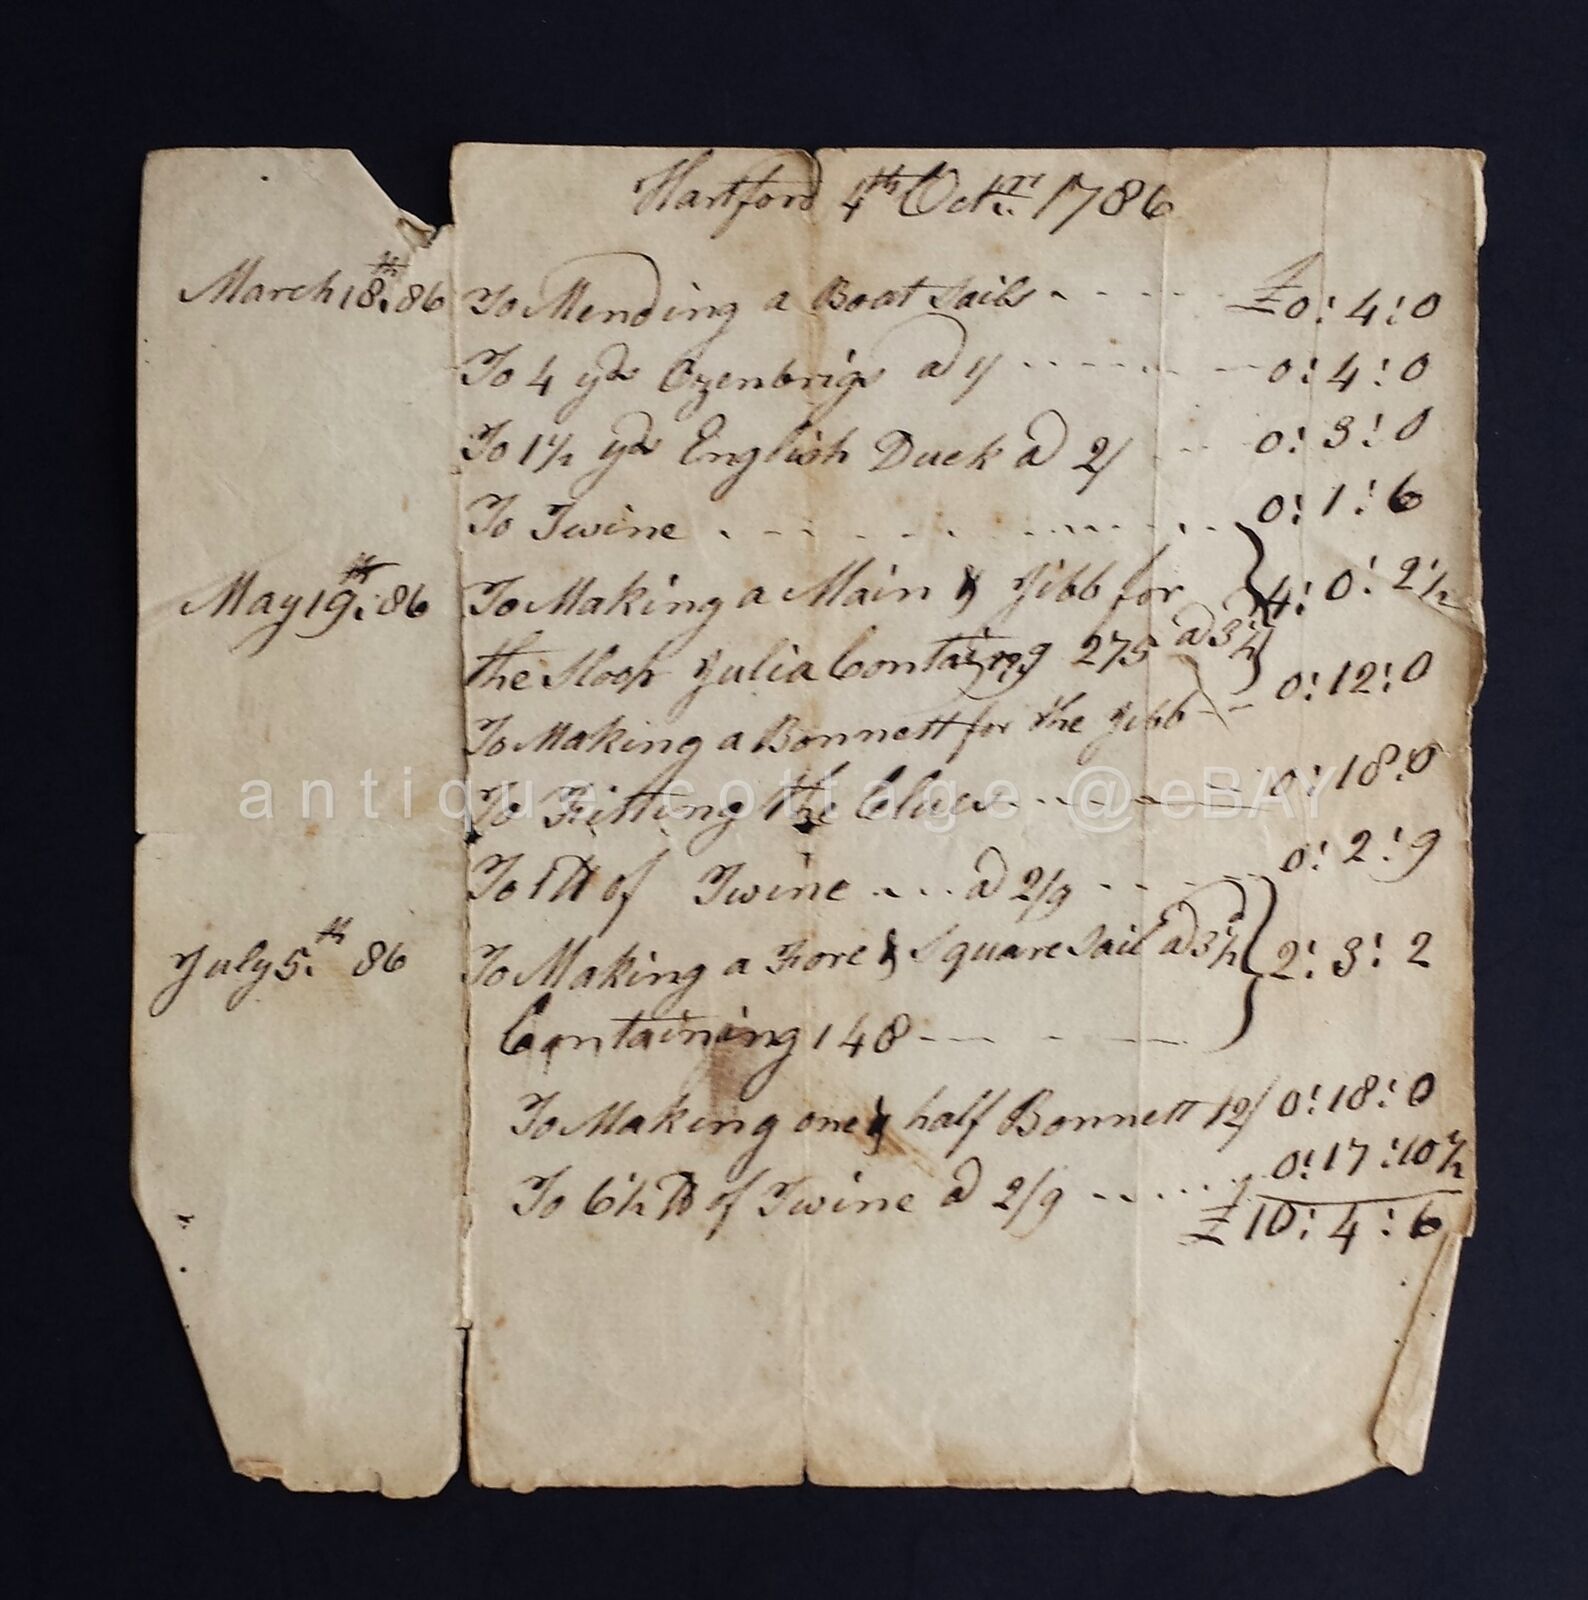 Hartford 4th Octr. 1786
March 18th. 86 To Mending a Boat Sails - - - - £0 : 4 : 0
To 4 yds Ozenbrigs a 1/ - - - - - - 0 : 4 : 0
To 1 1/2 yds English Duck a 2/ - - 0 : 3 : 0
To Twine - - - - - - - - - 0 : 1 : 6
May 19th. 86 To Making a Main & Jibb for } 4 : 0 : 2 1/2
the Sloop Julia Containing 275 a 3 1/2
To Making a Bonnett for the Jibb - - 0 : 12 : 0
To Fitting the Clues - - - - - - 0 : 18 : 0
antique cottage @eBAY
To 1 lb of Twine - - - a 2/9 - - - - 0 : 2 : 9
July 5th. 86 To Making a Fore & Square Sail a 3 1/2 } 2 : 3 : 2
Containing 148 - - - -
To Making one & half Bonnett 12/ 0 : 18 : 0
To 6 1/2 lb of Twine a 2/9 - - - - - 0 : 17 : 10 1/2
£10 : 4 : 6